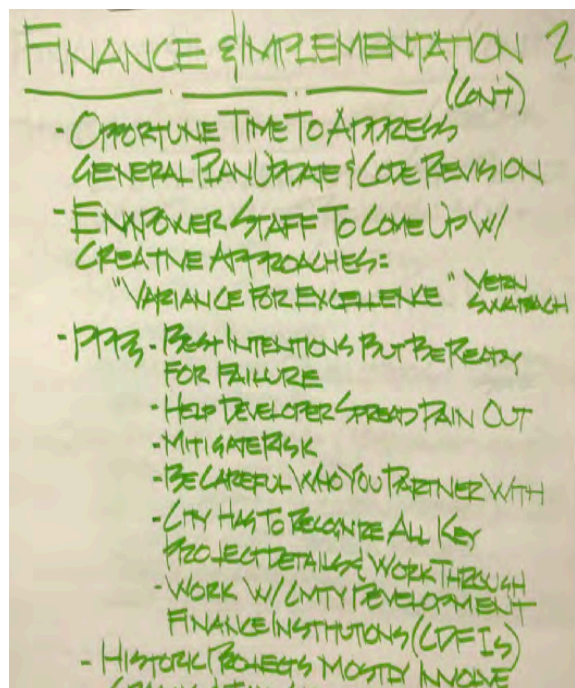 FINANCE & IMPLEMENTATION 2
(CON'T)
- OPPORTUNE TIME TO ADDRESS
GENERAL PLAN UPDATE & CODE REVISION
- EMPOWER STAFF TO COME UP W/
CREATIVE APPROACHES:
"VARIANCE FOR EXCELLENCE" VERN
- PPPs - BEST INTENTIONS BUT BE READY
FOR FAILURE
- HELP DEVELOPER SPREAD PAIN OUT
- MITIGATE RISK
- BE CAREFUL WHO YOU PARTNER WITH
- CITY HAS TO RECOGNIZE ALL KEY
PROJECT DETAILS & WORK THROUGH
- WORK W/ CMTY DEVELOPMENT
FINANCE INSTITUTIONS (CDFIs)
- HISTORIC PROJECTS MOSTLY INVOLVE